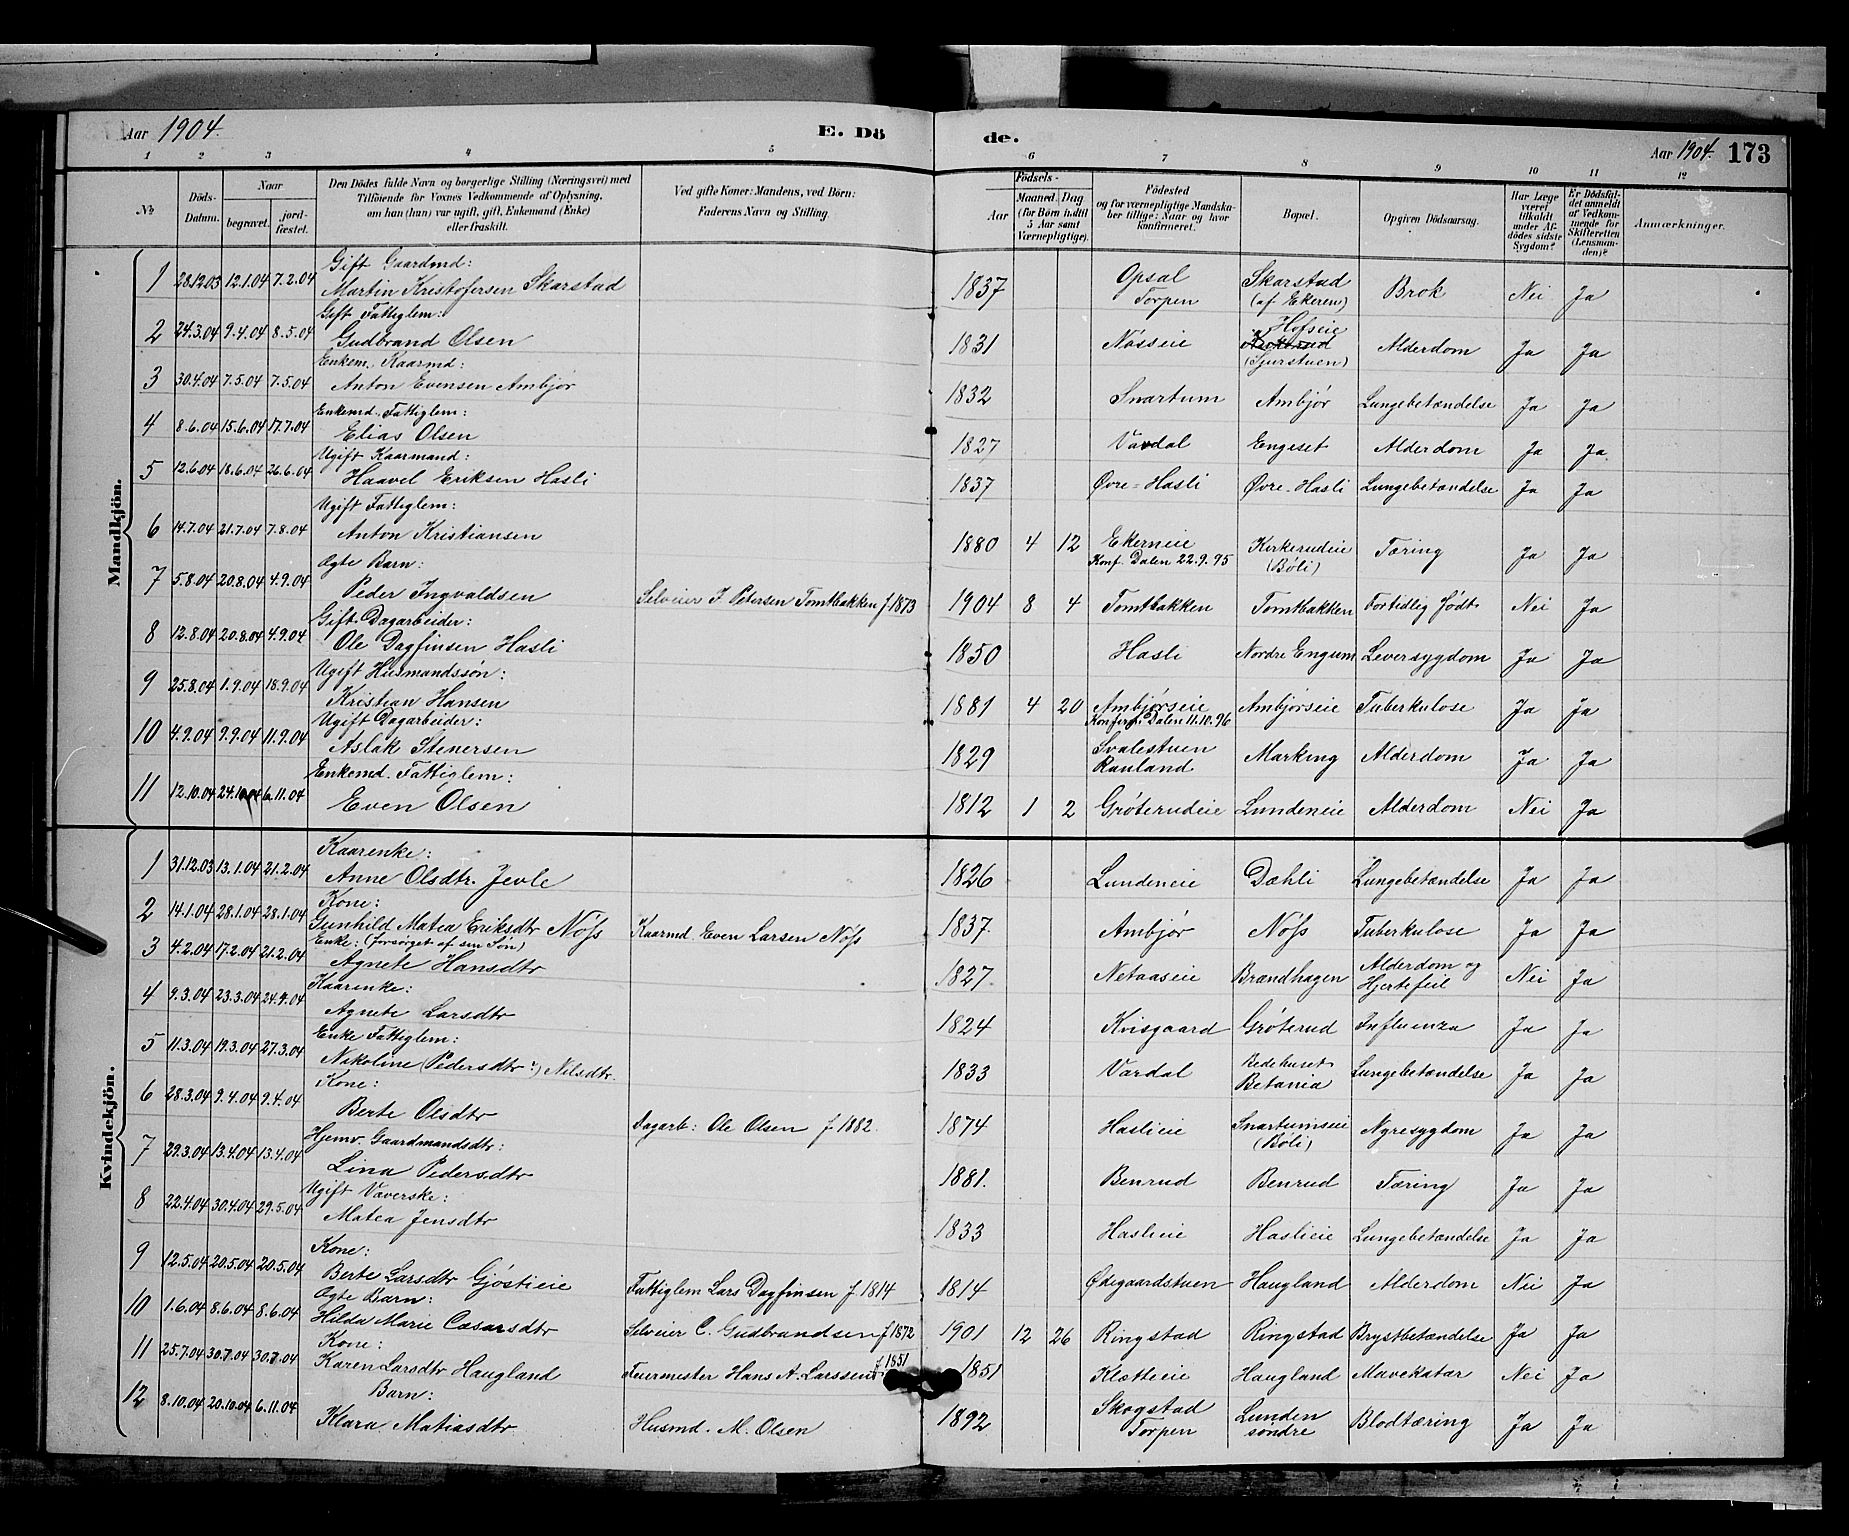 Aar 1904. E. Dö de. Aar 1904. 173
1 2 3 4 5 6 7 8 9 10 11 12
№ Döds-Datum. Naar begravet. jord-fæstet. Den Dödes fulde Navn og borgerlige Stilling (Næringsvei) med Tilföiende for Voxnes Vedkommende af Oplysning, om han (hun) var ugift, gift, Enkemand (Enke) eller fraskilt. Ved gifte Koner: Mandens, ved Börn: Faderens Navn og Stilling. Födsels- Aar Maaned Dag (for Börn indtil 5 Aar samt Værnepligtige). Födested og for værnepligtige Mandskaber tillige: Naar og hvor konfirmeret. Bopæl. Opgiven Dödsaarsag. Har Læge været tilkaldt under Afdödes sidste Sygdom? Er Dödsfaldet anmeldt af Vedkommende for Skifteretten (Lensmanden)? Anmærkninger.
Mandkjön.
1 28.12.03 12.1.04 7.2.04 Gift Gaardmd: Martin Kristofersen Skarstad 1837 Opsal Torpen Skarstad (af Ekeren) Brok Nei Ja
2 24.3.04 9.4.04 8.5.04 Gift Fattiglem: Gudbrand Olsen 1831 Nösseie Hofseie (Gjurstuen) Alderdom Ja Ja
3 30.4.04 7.5.04 7.5.04 Enkem. Kaarmd: Anton Evensen Ambjör 1832 Snartum Ambjör Lungebetændelse Ja Ja
4 8.6.04 15.6.04 17.7.04 Enkemd. Fattiglem: Elias Olsen 1827 Vardal Engeset Alderdom Ja Ja
5 12.6.04 18.6.04 26.6.04 Ugift Kaarmand: Haavel Eriksen Hasli 1837 Øvre-Hasli Øvre-Hasli Lungebetændelse Ja Ja
6 14.7.04 21.7.04 7.8.04 Ugift Fattiglem: Anton Kristiansen 1880 4 12 Ekerneie Konf. Dalen 22.9.95 Kirkerudeie (Böli) Tæring Ja Ja
7 5.8.04 20.8.04 4.9.04 Ægte Barn: Peder Ingvaldsen Selveier I. Petersen Tomtbakken f. 1873 1904 8 4 Tomtbakken Tomtbakken Fortidlig födt Nei Ja
8 12.8.04 20.8.04 4.9.04 Gift Dagarbeider: Ole Dagfinsen Hasli 1850 Hasli Nordre Engum Leversygdom Ja Ja
9 25.8.04 1.9.04 18.9.04 Ugift Husmandssön: Kristian Hansen 1881 4 20 Ambjörseie Konferm. Dalen 11.10.96 Ambjörseie Tuberkulose Ja Ja
10 4.9.04 9.9.04 11.9.04 Ugift Dagarbeider: Aslak Stenersen 1829 Svalestuen Rauland Marking Alderdom Ja Ja
11 12.10.04 24.10.04 6.11.04 Enkemd. Fattiglem: Even Olsen 1812 1 2 Gröterudeie Lundeneie Alderdom Nei Ja
Kvindekjön.
1 31.12.03 13.1.04 21.2.04 Kaarenke: Anne Olsdtr. Jevle 1826 Lundeneie Dæhli Lungebetændelse Ja Ja
2 14.1.04 28.1.04 28.1.04 Kone: Gunhild Matea Eriksdtr Nöss Kaarmd. Even Larsen Nöss 1837. Ambjör Nöss Tuberkulose Ja Ja
3 4.2.04 17.2.04 21.2.04 Enke: (forsörget af sin Sön) Agnete Hansdtr 1827. Netaaseie Brændhagen Alderdom og Hjertefeil Nei Ja
4 9.3.04 23.3.04 24.9.04 Kaarenke: Agnete Larsdtr 1824 Kvisgaard Gröterud Influenza Ja Ja
5 11.3.04 19.3.04 27.3.04 Enke Fattiglem: Nikoline (Pedersdtr?) Nilsdtr. 1833 Vardal Bedehuset Betania Lungebetændelse Ja Ja
6 28.3.04 9.4.04 9.4.04 Kone: Berte Olsdtr Dagarb: Ole Olsen f. 1882. 1874 Haslieie Snartumseie (Böli) Nyresygdom Ja Ja
7 29.3.04 13.4.04 13.4.04 Hjemv. Gaardmandsdtr: Lina Pedersdtr 1881. Benrud Benrud Tæring Ja Ja
8 22.4.04 30.4.04 29.5.04 Ugift Væverske: Matea Jensdtr 1833 Haslieie Haslieie Lungebetændelse Ja Ja
9 12.5.04 20.5.04 20.5.04 Kone: Berte Larsdtr Gjöstieie Fattiglem Lars Dagfinsen f. 1814 1814 Ødegaardstuen Haugland Alderdom Nei Ja
10 1.6.04 8.6.04 8.6.04 Ægte Barn: Hilda Marie Cæsarsdtr Selveier C. Gudbrandsen f. 1872 1901 12 26 Ringstad Ringstad Brystbetændelse Ja Ja
11 25.7.04 30.7.04 30.7.04 Kone: Karen Larsdtr Haugland Feuermester Hans A. Larssen f. 1851 1851 Klætteie Haugland Mavekatar Nei Ja
12 8.10.04 20.10.04 6.11.04 Barn: Klara Matiasdtr Husmd. M. Olsen 1892 Skogstad Torpen Lunden söndre Blodtæring Ja Ja